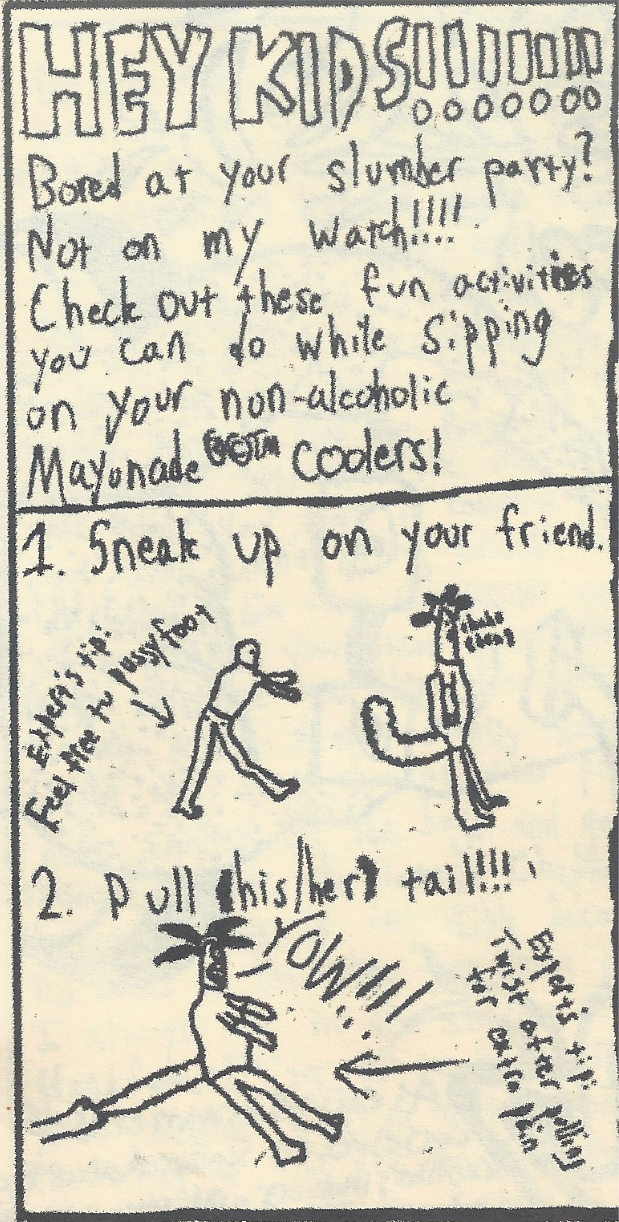 HEY KIDS!!!!!!!
Bored at your slumber party?
Not on my watch!!!!
Check out these fun activities
you can do while sipping
on your non-alcoholic
Mayonade coolers!
1. Sneak up on your friend.
Expert's tip:
Feel free to pussyfoot
2. Pull (his/her) tail!!!
YOW!!!!
Expert's tip:
Twist after pulling
for extra pain